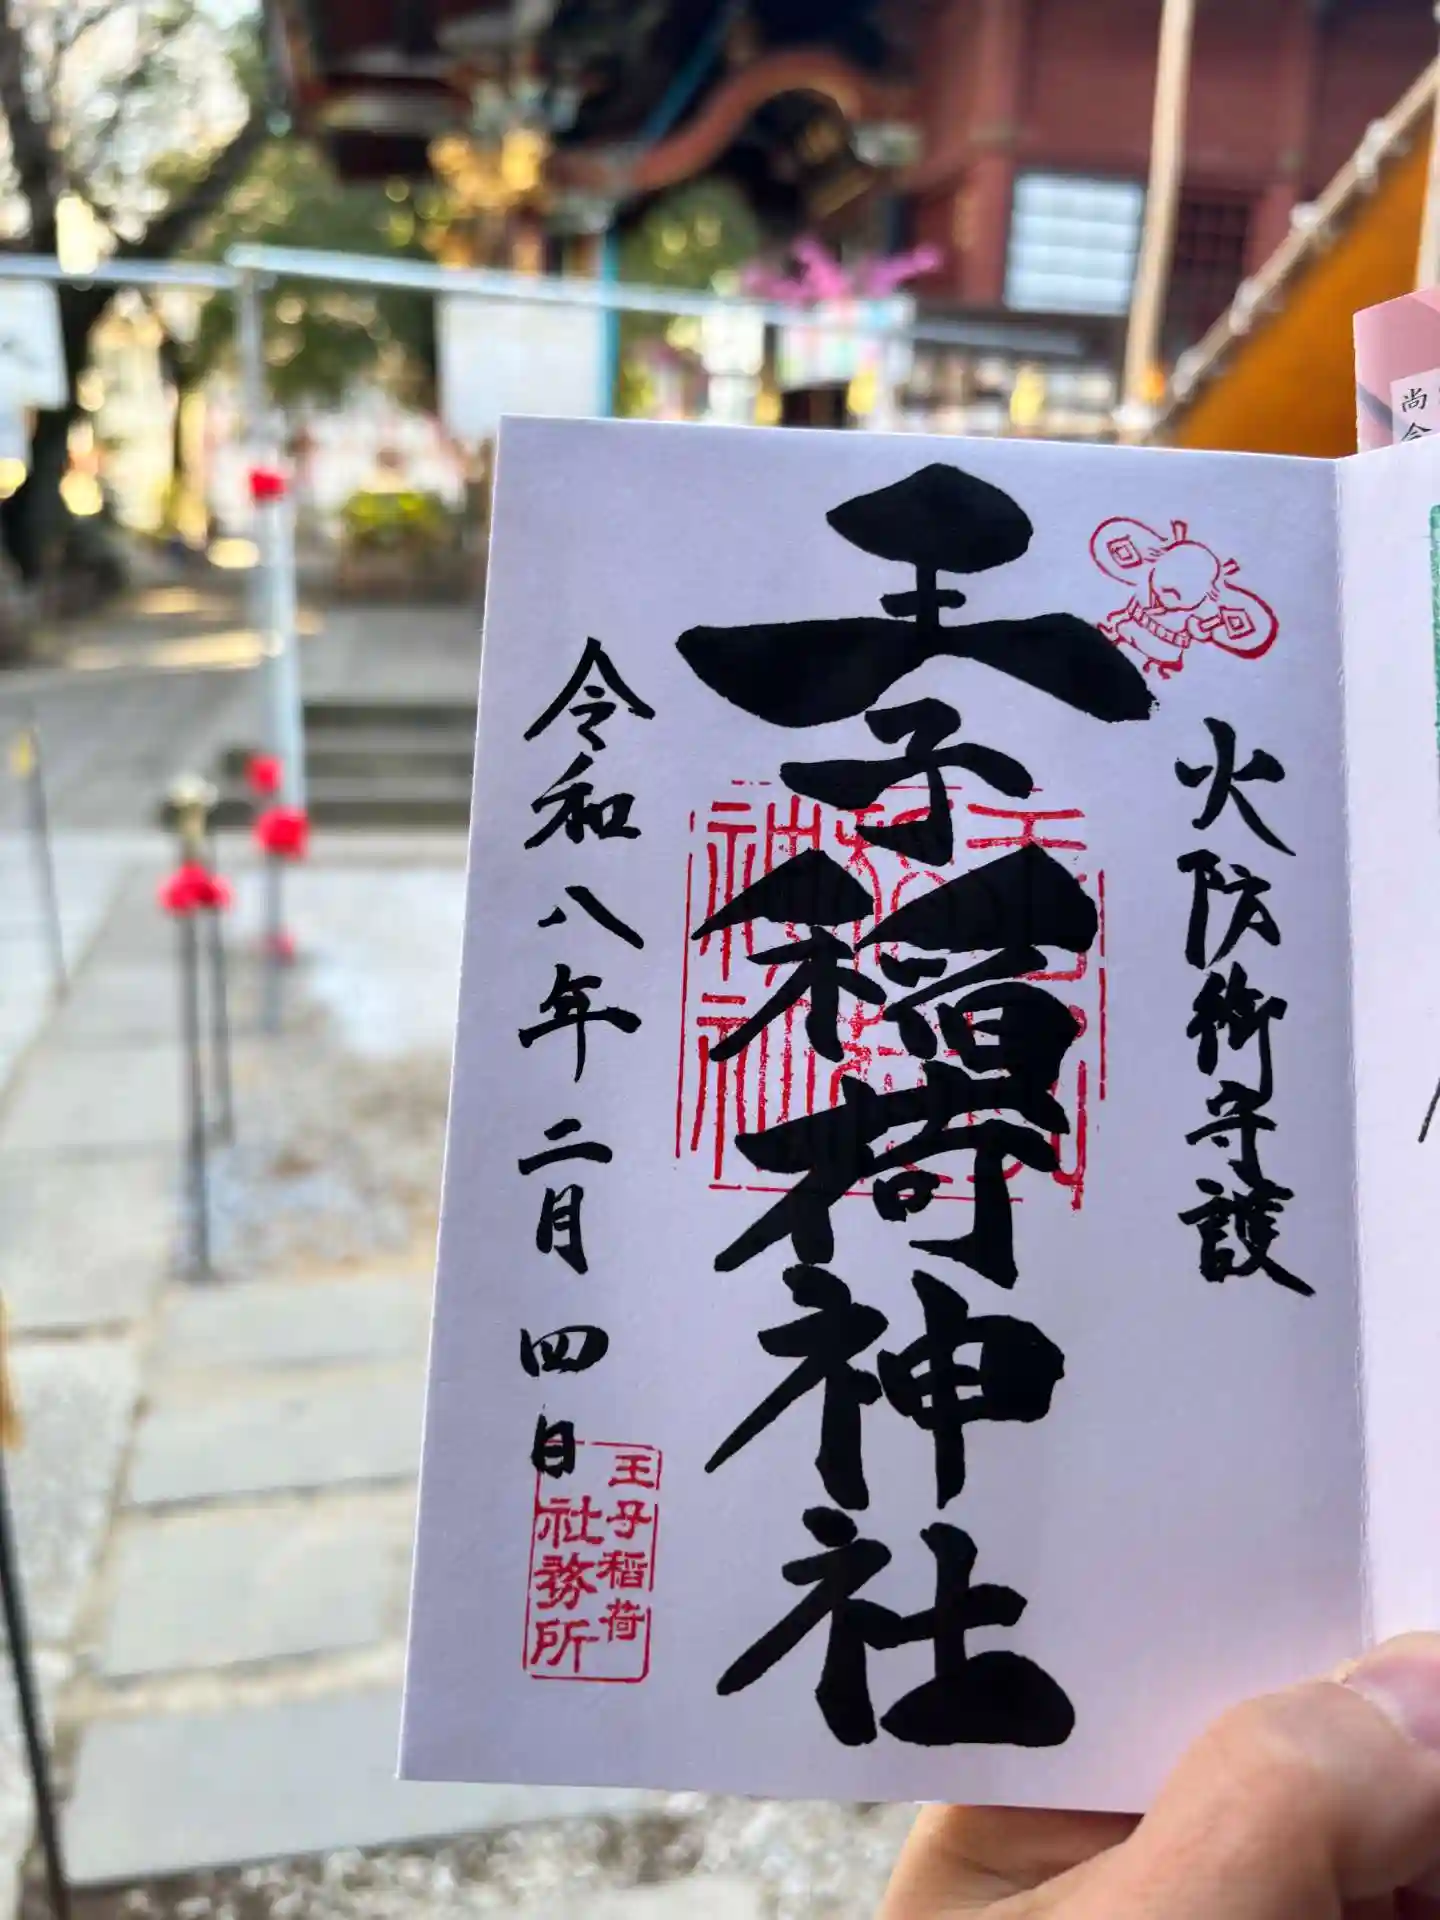 火防御守護
王子稲荷神社
令和八年二月四日
王子稲荷
社務所
尚